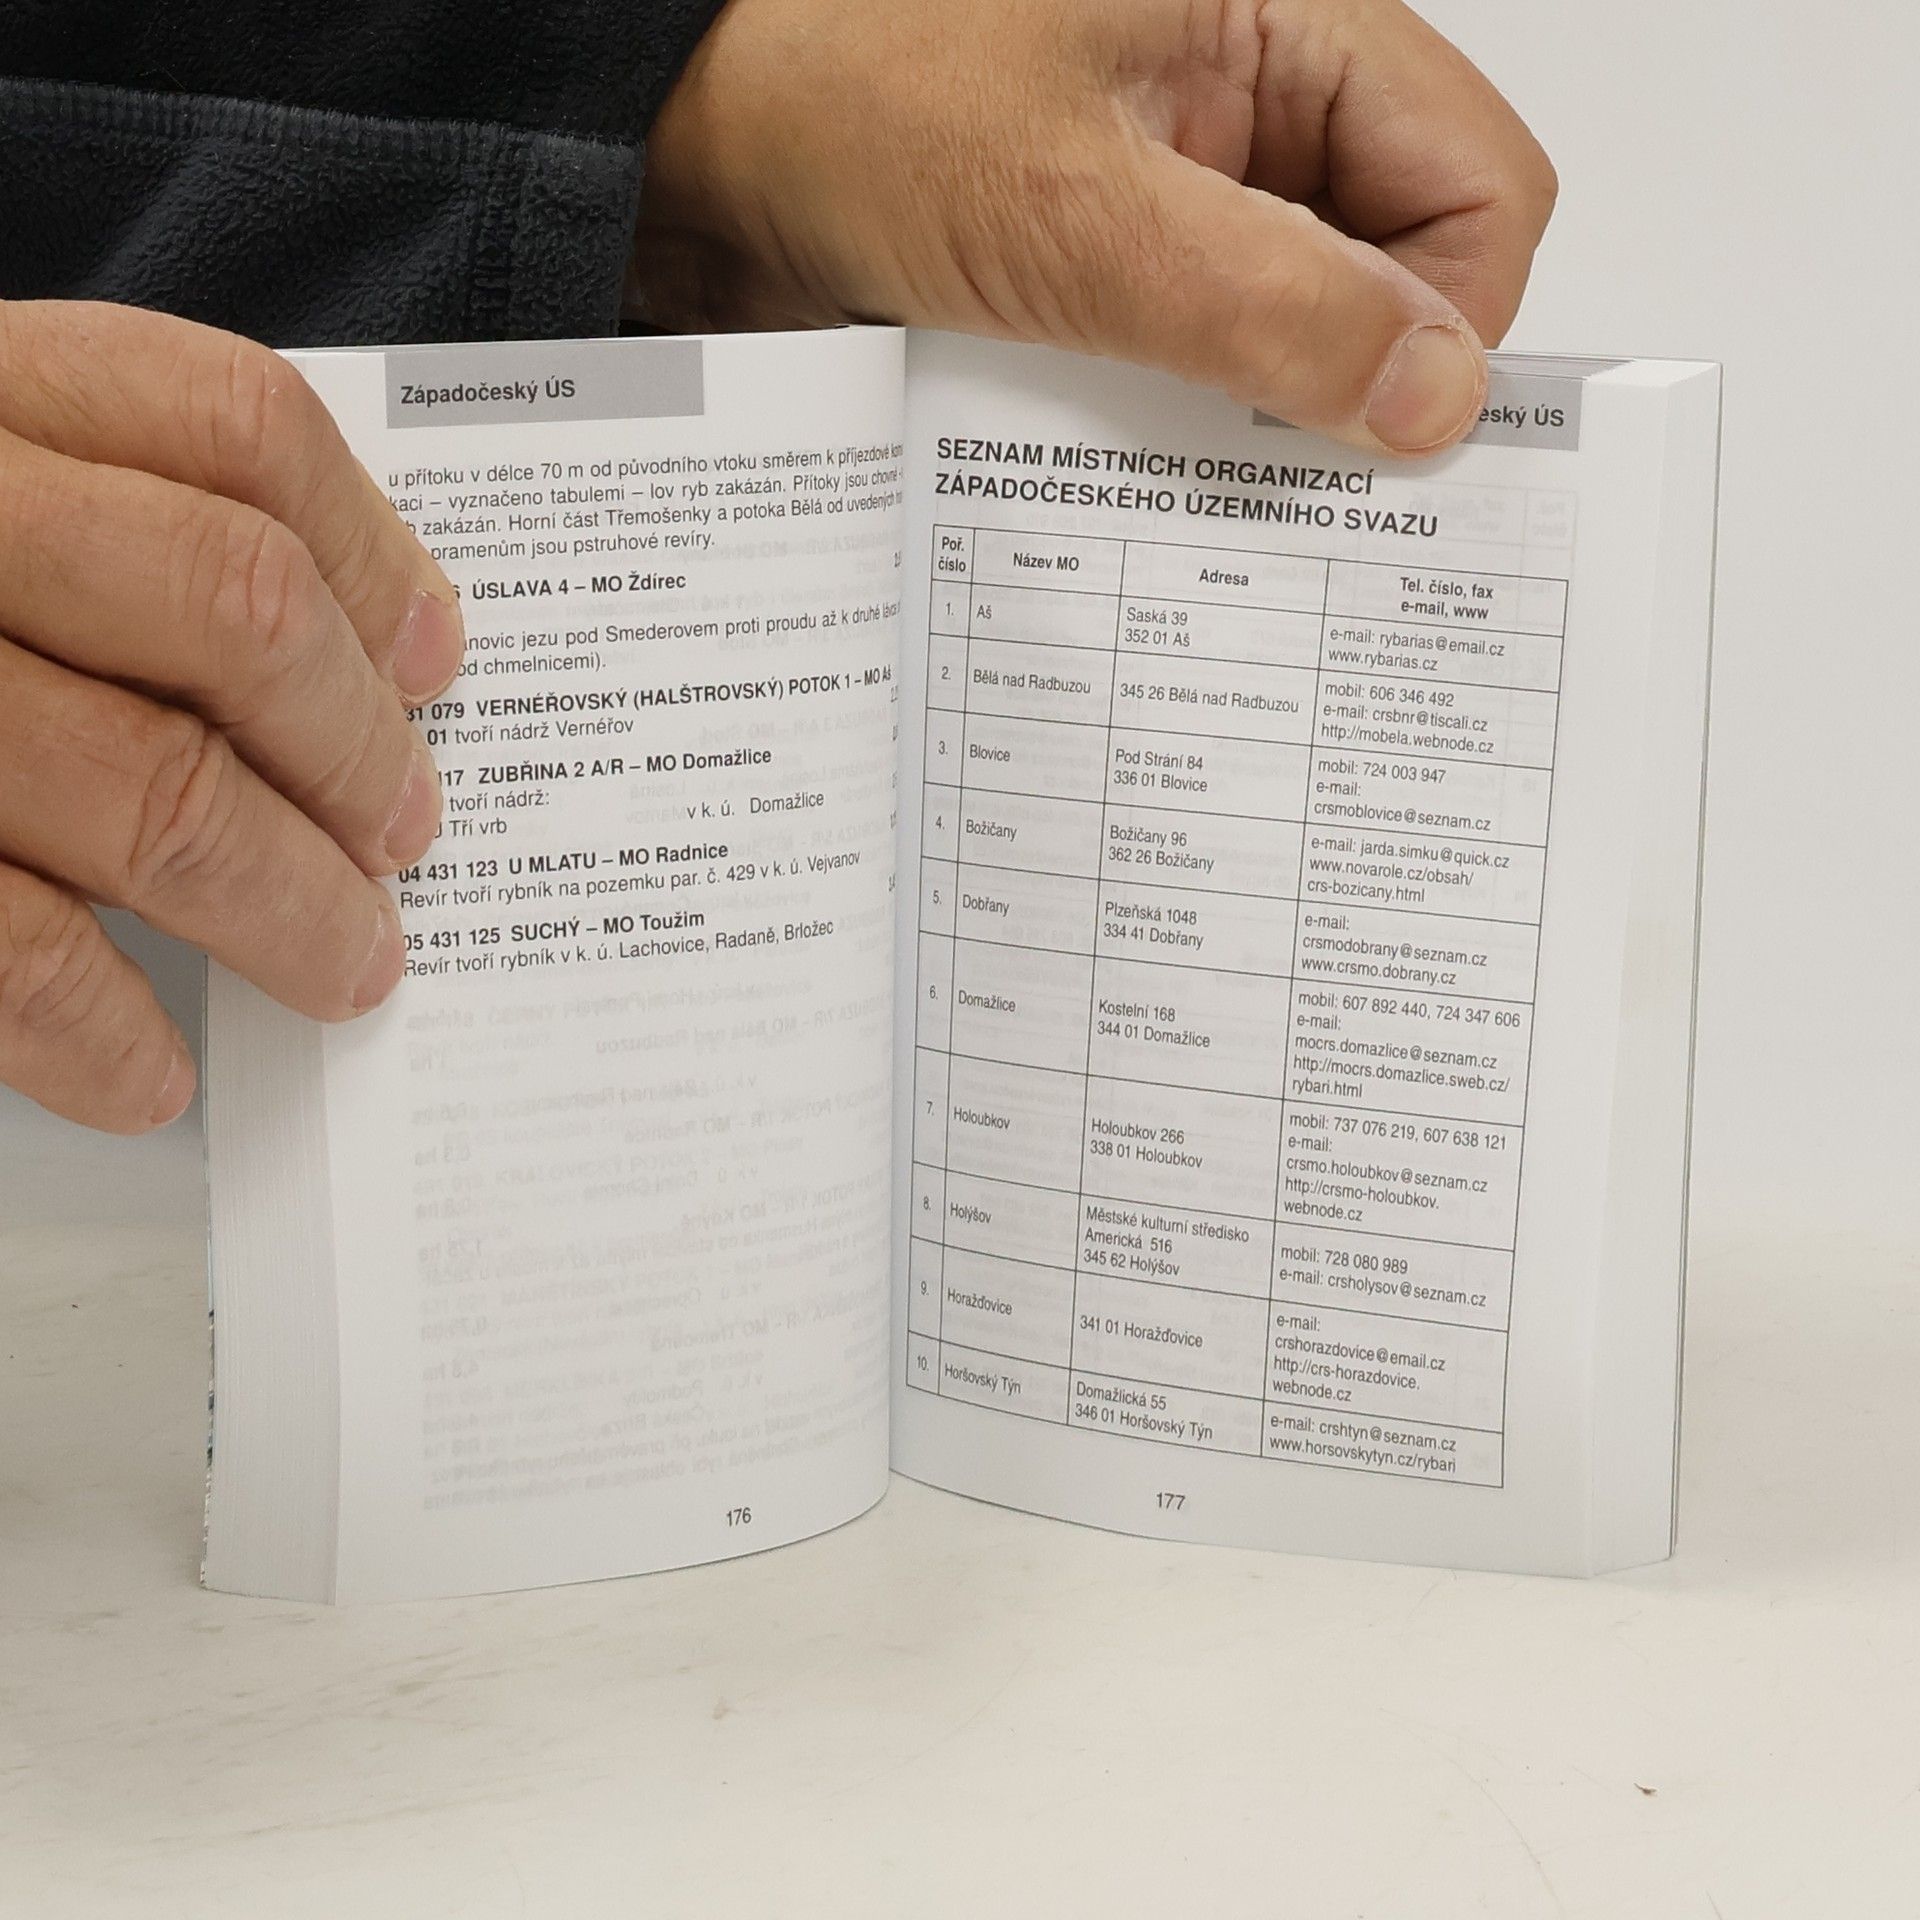 Západočeský ÚS
u přítoku v délce 70 m od původního vtoku směrem k příjezdové
kaci – vyznačeno tabulemi – lov ryb zakázán. Přítoky jsou chovné
zakázán. Horní část Třemošenky a potoka Bělá od uvedených
pramenům jsou pstruhové revíry.
ÚSLAVA 4 – MO Ždírec
jezu pod Smederovem proti proudu až k druhé
chmelnicemi).
079 VERNÉŘOVSKÝ (HALŠTROVSKÝ) POTOK 1 – MO Aš
01 tvoří nádrž Vernéřov
ZUBŘINA 2 A/R – MO Domažlice
tvoří nádrž:
Tří vrb v k. ú. Domažlice
04 431 123 U MLATU – MO Radnice
Revír tvoří rybník na pozemku par. č. 429 v k. ú. Vejvanov
05 431 125 SUCHÝ – MO Toužim
Revír tvoří rybník v k. ú. Lachovice, Radaně, Brložec
176
ÚS
SEZNAM MÍSTNÍCH ORGANIZACÍ
ZÁPADOČESKÉHO ÚZEMNÍHO SVAZU
Poř.
číslo
Název MO
Adresa
Tel. číslo, fax
e-mail, www
1.
Aš
Saská 39
352 01 Aš
e-mail: rybarias@email.cz
www.rybarias.cz
2.
Bělá nad Radbuzou
345 26 Bělá nad Radbuzou
mobil: 606 346 492
e-mail: crsbnr@tiscali.cz
http://mobela.webnode.cz
3.
Blovice
Pod Strání 84
336 01 Blovice
mobil: 724 003 947
e-mail:
crsmoblovice@seznam.cz
4.
Božičany
Božičany 96
362 26 Božičany
e-mail: jarda.simku@quick.cz
www.novarole.cz/obsah/
crs-bozicany.html
5.
Dobřany
Plzeňská 1048
334 41 Dobřany
e-mail:
crsmodobrany@seznam.cz
www.crsmo.dobrany.cz
6.
Domažlice
Kostelní 168
344 01 Domažlice
mobil: 607 892 440, 724 347 606
e-mail:
mocrs.domazlice@seznam.cz
http://mocrs.domazlice.sweb.cz/
rybari.html
7.
Holoubkov
Holoubkov 266
338 01 Holoubkov
mobil: 737 076 219, 607 638 121
e-mail:
crsmo.holoubkov@seznam.cz
http://crsmo-holoubkov.
webnode.cz
8.
Holýšov
Městské kulturní středisko
Americká 516
345 62 Holýšov
mobil: 728 080 989
e-mail: crsholysov@seznam.cz
9.
Horažďovice
341 01 Horažďovice
e-mail:
crshorazdovice@email.cz
http://crs-horazdovice.
webnode.cz
10.
Horšovský Týn
Domažlická 55
346 01 Horšovský Týn
e-mail: crshtyn@seznam.cz
www.horsovskytyn.cz/rybari
177